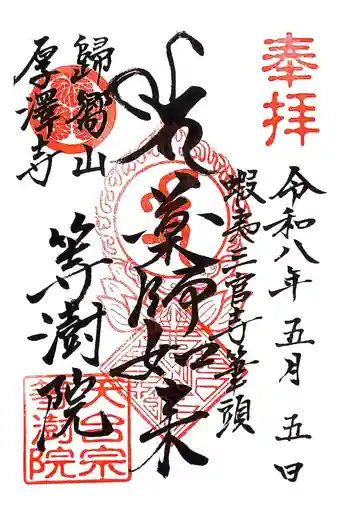 奉拝
令和八年五月五日
蝦夷三官寺筆頭
薬師如来
歸嚮山
厚澤寺
等澍院
天台宗
等澍院